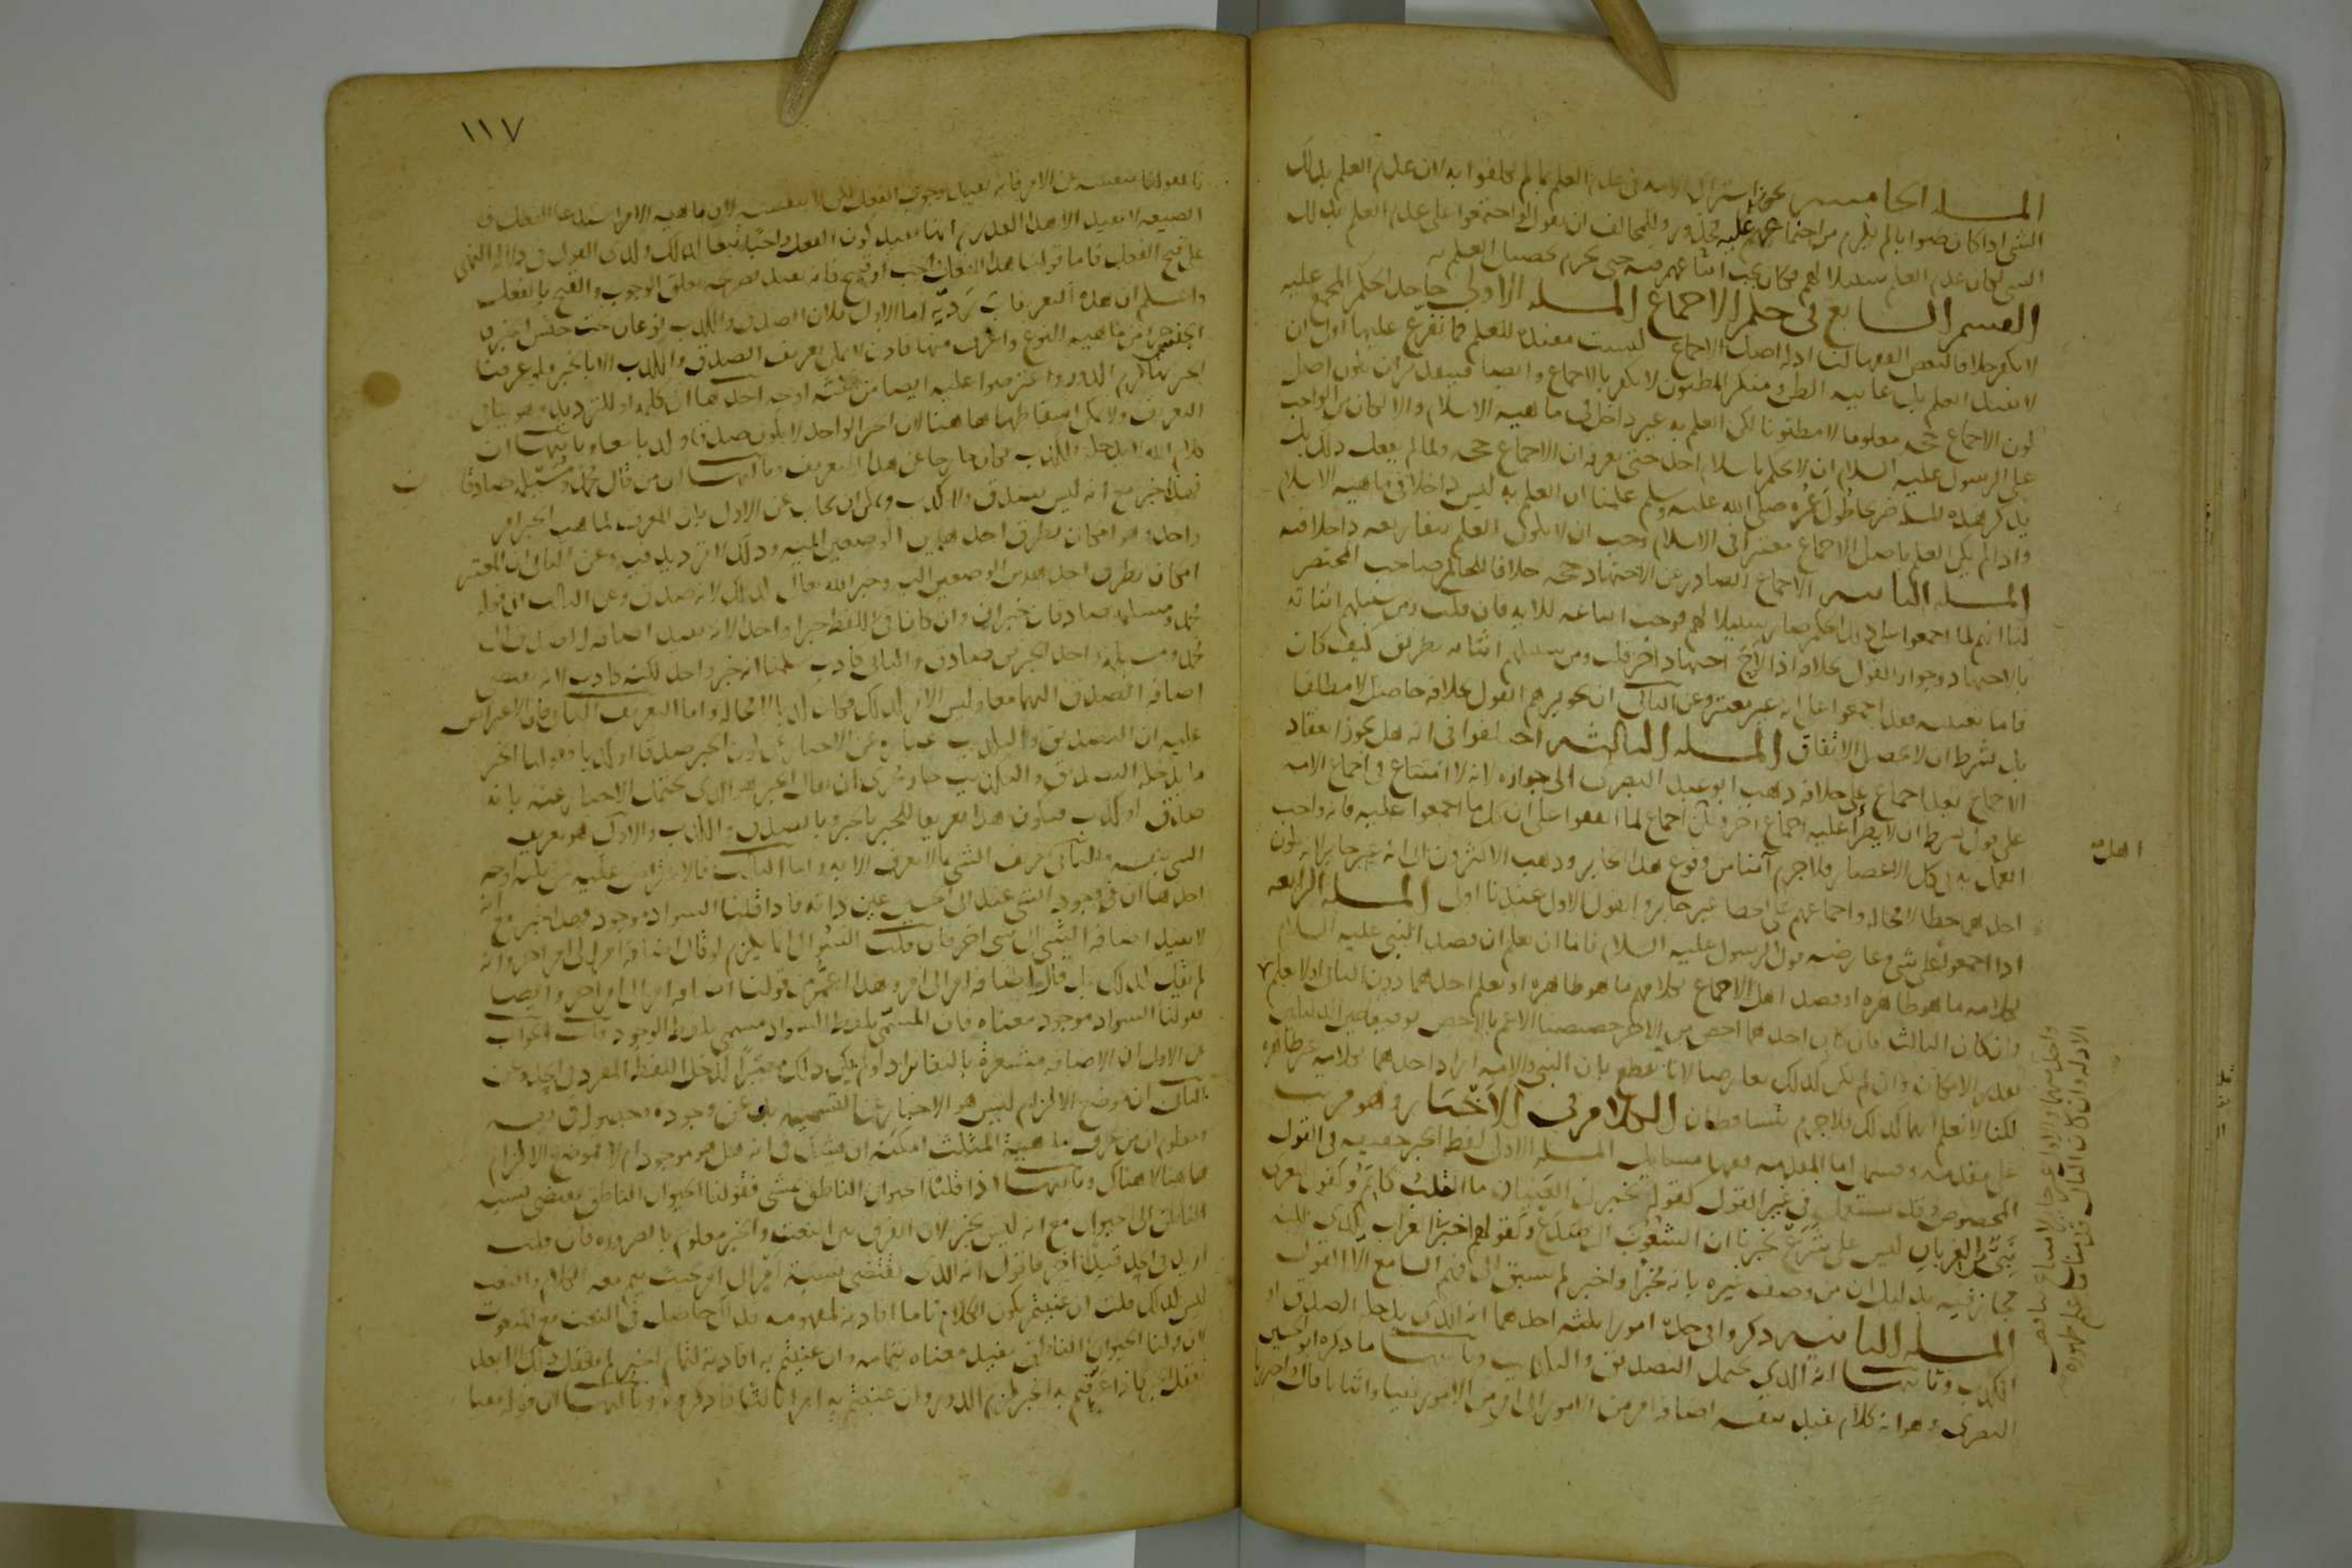 المسله الخامسه يجوز اشتراك الامه في عدم العلم بما لم يكلفوا به لان عدم العلم بذلك
الشي اذا كان صوابا لم يلزم من اجتماعهم عليه محذور وللمخالف ان يقول لو اجتمعوا على عدم العلم بذلك
الشي لكان عدم العلم سبيلا لهم فكان يجب اتباعهم فيه حتى يحرم تحصيل العلم به
القسم السابع في حكم الاجماع المسله الاولى جاحد الحكم المجمع عليه
لا يكفر خلافا لبعض الفقها لنا ادله اصل الاجماع ليست مفيدة للعلم فما تفرع عليها اولى ان
لا تفيد العلم بل غايته الظن ومنكر المظنون لا يكفر بالاجماع وايضا فبتقدير ان يكون اصل
كون الاجماع حجه معلوما لا مظنونا لكن العلم به غير داخل في ماهيه الاسلام والا لكان من الواجب
على الرسول عليه السلام ان لا يحكم باسلام احد حتى يعرفه ان الاجماع حجه ولما لم يفعل ذلك بل
لم يذكر هذه المسله صريحا طول عمره صلى الله عليه وسلم علمنا ان العلم به ليس داخلا في ماهيه الاسلام
واذا لم يكن العلم باصل الاجماع معتبرا في الاسلام وجب ان لا يكون العلم بتفاريعه داخلا فيه
المسله الثانيه الاجماع الصادر عن الاجتهاد حجه خلافا للحاكم صاحب المختصر
لنا انهم لما اجمعوا على ذلك الحكم صار سبيلا لهم فوجب اتباعه للايه فان قلت ومن سبيلهم اثباته
بالاجتهاد وجواز القول بخلافه اذا لاح اجتهاد اخر قلت ومن سبيلهم اثباته بطريق كيف كان
فاما تعيينه فقد اجمعوا على انه غير معتبر وعن الثاني ان تجويزهم القول بخلافه حاصل لا مطلقا
بل بشرط ان لا يحصل الاتفاق المسله الثالثه اختلفوا في انه هل يجوز انعقاد
الاجماع بعد اجماع على خلافه ذهب ابو عبد الله البصري الى جوازه لانه لا امتناع في اجماع الامه
على قول بشرط ان لا يطرأ عليه اجماع اخر ولكن اجماع لما اتفقوا على ان كل ما اجمعوا عليه فانه واجب
العمل به في كل الاعصار فلاجرم آمنا من وقوع هذا الجايز وذهب الاكثرون الى انه غير جايز لانه يكون
احدهما خطا لا محاله واجماعهم على الخطا غير جايز والقول الاول عندنا اولى المسله الرابعه
اذا اجمعوا على شي وعارضه قول الرسول عليه السلام فاما ان يعلم ان قصد النبي عليه السلام
بكلامه ما هو ظاهره او قصد اهل الاجماع بكلامهم ما هو ظاهره او نعلم احدهما دون الثاني او لا نعلم
وان كان الثالث فان كان احدهما اخص من الاخر خصصنا الاعم بالاخص توفيقا بين الدليلين
بقدر الامكان وان لم يكن كذلك تعارضا لانا نقطع بان النبي والامه اراد احدهما بكلامه غير ظاهره
لكنا لا نعلم ايهما كذلك فلاجرم يتساقطان الكلام في الاخبار وهو مرتب
على مقدمه وقسمين اما المقدمه ففيها مسايل المسله الاولى لفظ الخبر حقيقه في القول
المخصوص وقد يستعمل في غير القول كقوله تخبرني العينان ما القلب كاتم وكقول المعري
نبي من الغربان ليس على شرع يخبرنا ان الشعوب الى صدع وكقولهم اخبرنا الغراب بكذا لكنه
مجاز فيه بدليل ان من وصف غيره بانه مخبر او اخبر لم يسبق الى فهم السامع الا القول
المسله الثانيه ذكروا في حده امورا ثلثه احدهما انه الذي يدخله الصدق او
الكذب وثانيها انه الذي يحتمل التصديق والتكذيب وثالثها ما ذكره ابو الحسين
البصري وهو انه كلام يفيد بنفسه اضافه امر من الامور الى امر من الامور نفيا او اثباتا قال واحترزنا
اهل
واحد منهما والاول غير جايز لامتناع تناقض
الادله وان كان الثاني
١١٧
بقولنا بنفسه عن الامر فانه يفيد وجوب الفعل لكن لا بنفسه لان ماهيه الامر استدعا الفعل و
الصيغه لا تفيد الا هذا القدر ثم انها تفيد كون الفعل واجبا تبعا لذلك وكذى القول في دلاله النهي
على قبح الفعل فاما قولنا هذا الفعل واجب او قبيح فانه يفيد بصريحه تعلق الوجوب والقبح بالفعل
واعلم ان هذه التعريفات رديه اما الاول فلان الصدق والكذب نوعان تحت جنس الخبر و
الجنس جزء من ماهيه النوع واعرف منها فاذن لا يمكن تعريف الصدق والكذب الا بالخبر فلو عرفنا
الخبر بهما لزم الدور واعترضوا عليه ايضا من ثلثه اوجه احدها ان كلمه او للترديد وهو ينافي
التعريف ولا يمكن اسقاطها هاهنا لان الخبر الواحد لا يكون صدقا وكذبا معا وثانيها ان
كلام الله لا يدخله الكذب فكان خارجا عن هذا التعريف وثالثها ان من قال محمد ومسيلمه صادقان
فهذا خبر مع انه ليس بصدق ولا كذب ويمكن ان يجاب عن الاول بان المعرف لماهيه الخبر امر
واحد وهو امكان تطرق احد هذين الوصفين اليه وذلك لا ترديد فيه وعن الثاني ان المعتبر
امكان تطرق احد هذين الوصفين اليه وخبر الله تعالى كذلك لانه صدق وعن الثالث ان قوله
محمد ومسيلمه صادقان خبران وان كانا في اللفظ خبرا واحدا لانه يفيد اضافه الصدق الى
محمد ومسيلمه واحد الخبرين صادق والثاني كاذب سلمنا انه خبر واحد لكنه كاذب لانه يقتضي
اضافه الصدق اليهما معا وليس الامر كذلك فكان كذبا لا محاله واما التعريف الثاني فالاعتراض
عليه ان التصديق والتكذيب عباره عن الاخبار عن كون الخبر صدقا او كذبا فقولنا الخبر
ما يدخله التصديق والتكذيب جار مجرى ان يقال الخبر هو الذي يحتمل الاخبار عنه بانه
صادق او كذب فيكون هذا تعريفا للخبر بالخبر وبالصدق والكذب والاول هو تعريف
الشي بنفسه والثاني تعريف الشي بما لا يعرف الا به واما الثالث فالاعتراض عليه من ثلثه اوجه
احدها ان في وجود الشي عند ابي الحسين عين ذاته فاذا قلنا السواد موجود فهذا خبر مع انه
لا يفيد اضافه الشي الى شي اخر فان قلت السؤال انما يلزم لو قال اضافه امر الى امر اخر وانه
لم يقل كذلك بل قال اضافه امر الى امر وهذا اعم من قولنا اضافه امر الى امر اخر وايضا
فقولنا السواد موجود معناه فان المسمى بلفظ السواد مسمى بلفظ الوجود قلت الجواب
عن الاول ان الاضافه مشعرة بالتغاير اذ لو لم يكن ذلك معتبرا لدخل اللفظ المفرد في الحد وعن
الثاني ان موضع الالزام ليس هو الاخبار عن التسميه بل عن وجوده وحصوله في نفسه
ومعلوم ان من عرف ماهية المثلث امكنه ان يشك في انه هل هو موجود ام لا فموضع الالزام
هاهنا لا هناك وثانيها اذا قلنا الحيوان الناطق يمشي فقولنا الحيوان الناطق يقتضي نسبه
الناطق الى الحيوان مع انه ليس بخبر لان الفرق بين النعت والخبر معلوم بالضروره فان قلت
ازيد في الحد قيدا اخر فاقول انه الذي يقتضي نسبة امر الى امر بحيث يتم معه الكلام والنعت
ليس كذلك قلت ان عنيتم بكون الكلام تاما افادته لمفهومه فذاك حاصل في النعت مع المنعوت
لان قولنا الحيوان الناطق يفيد معناه بتمامه وان عنيتم به افادته لتمام الخبر لم يعقل ذلك الا بعد
تعقل الخبر فاذا عرفتم به الخبر لزم الدور وان عنيتم به امرا ثالثا فاذكروه وثالثها ان قوله نفيا